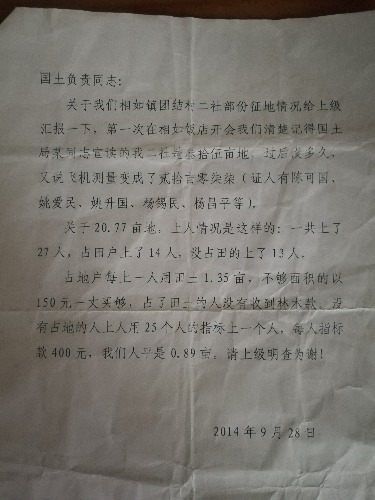 国土负责同志：
关于我们相如镇团结村二社部份征地情况给上级
汇报一下，第一次在相如饭店开会我们清楚记得国土
局某同志宣读的我二社是叁拾伍亩地，过后没多久，
又说飞机测量变成了贰拾亩零柒柒（证人有陈可国、
姚爱民、姚升国、杨锡民、杨昌平等）。
关于20.77亩地，上人情况是这样的：一共上了
27人，占田户上了14人，没占田的上了13人。
占地户每上一人用田土1.35亩，不够面积的以
150元一丈买够，占了田土的人没有收到林木款，没
有占地的人上人用25个人的指标上一个人，每人指标
款400元，我们人平是0.89亩。请上级明查为谢！
2014年9月28日